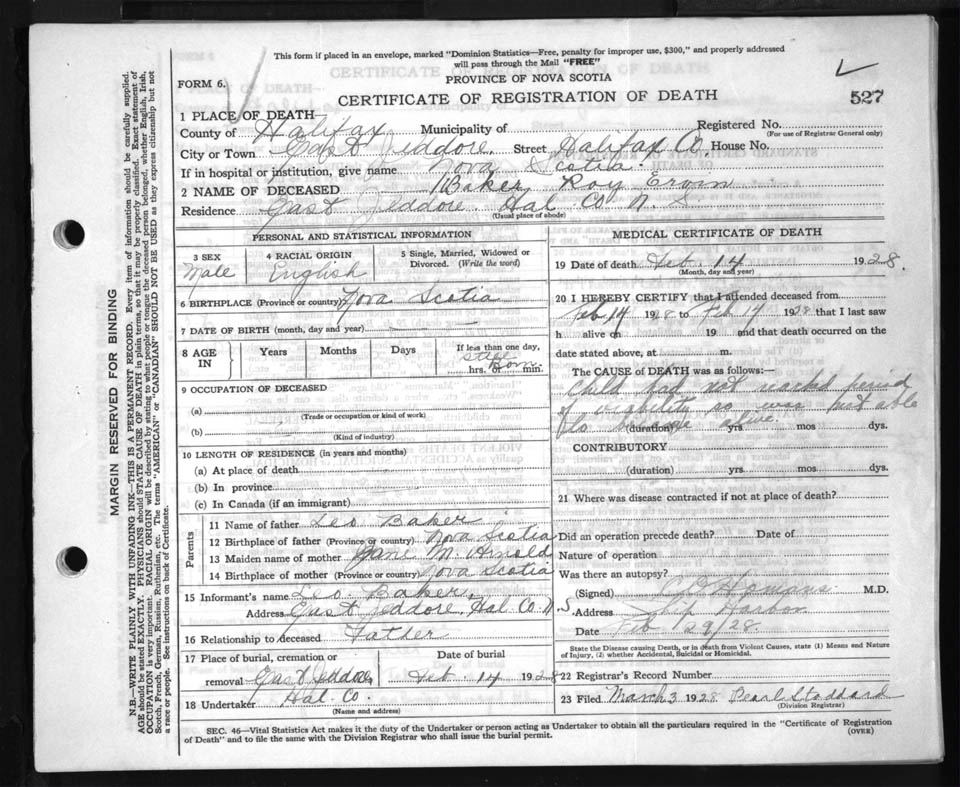 This form if placed in an envelope, marked "Dominion Statistics—Free, penalty for improper use, $300," and properly addressed
will pass through the Mail "FREE"
PROVINCE OF NOVA SCOTIA
FORM 6.
CERTIFICATE OF REGISTRATION OF DEATH
527
1 PLACE OF DEATH—
County of Halifax Municipality of Registered No.
(For use of Registrar General only)
City or Town East Jeddore, Street Halifax Co. House No.
If in hospital or institution, give name Nova Scotia.
2 NAME OF DECEASED Baker, Roy
Residence East Jeddore Hal Co N. S.
(Usual place of abode)
PERSONAL AND STATISTICAL INFORMATION
3 SEX
Male
4 RACIAL ORIGIN
English
5 Single, Married, Widowed or
Divorced. (Write the word)
6 BIRTHPLACE (Province or country) Nova Scotia
7 DATE OF BIRTH (month, day and year)
8 AGE
IN
Years Months Days If less than one day,
still
hrs. Born min.
9 OCCUPATION OF DECEASED
(a)
(Trade or occupation or kind of work)
(b)
(Kind of industry)
10 LENGTH OF RESIDENCE (in years and months)
(a) At place of death
(b) In province
(c) In Canada (if an immigrant)
Parents
11 Name of father Leo Baker
12 Birthplace of father (Province or country) Nova Scotia
13 Maiden name of mother M. Arnold
14 Birthplace of mother (Province or country) Nova Scotia
15 Informant's name Leo Baker,
Address East Jeddore, Hal. Co. N. S
16 Relationship to deceased Father
17 Place of burial, cremation or
removal East Jeddore
Hal Co.
Date of burial
Feb. 14 1928
18 Undertaker
(Name and address)
MEDICAL CERTIFICATE OF DEATH
19 Date of death Feb. 14 1928.
(Month, day and year)
20 I HEREBY CERTIFY that I attended deceased from
Feb 14 1928 to Feb 14 1928 that I last saw
h alive on 19 and that death occurred on the
date stated above, at m.
The CAUSE of DEATH was as follows:—
Child had not reached period
of so was not able
to be alive.
(duration) yrs mos dys.
CONTRIBUTORY
(duration) yrs mos dys.
21 Where was disease contracted if not at place of death?
Did an operation precede death? Date of
Nature of operation
Was there an autopsy?
(Signed) M.D.
Address Ship Harbor
Date Feb 29/28.
State the Disease causing Death, or in death from Violent Causes, state (1) Means and Nature
of Injury, (2) whether Accidental, Suicidal or Homicidal.
22 Registrar's Record Number
23 Filed March 3 1928 Pearl Stoddard
(Division Registrar)
SEC. 46—Vital Statistics Act makes it the duty of the Undertaker or person acting as Undertaker to obtain all the particulars required in the "Certificate of Registration
of Death" and to file the same with the Division Registrar who shall issue the burial permit.
(OVER)
MARGIN RESERVED FOR BINDING
N.B.—WRITE PLAINLY WITH UNFADING INK—THIS IS A PERMANENT RECORD. Every item of information should be carefully supplied.
AGE should be stated EXACTLY. PHYSICIANS should STATE CAUSE OF DEATH in plain terms, so that it may be properly classified. Exact statement of
OCCUPATION is very important. RACIAL ORIGIN will be described by stating to what people or tongue the deceased person belonged, whether English, Irish,
Scotch, French, German, Russian, Ruthenian, etc. The terms "AMERICAN" or "CANADIAN" SHOULD NOT BE USED as they express citizenship but not
a race or people. See instructions on back of Certificate.